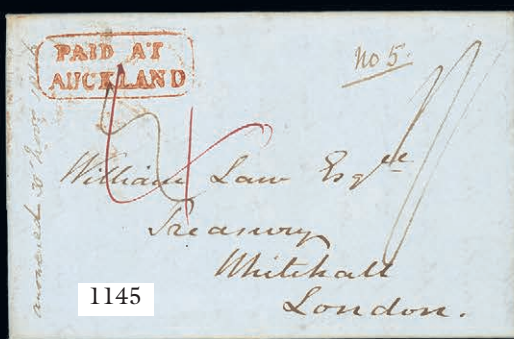 PAID AT
AUCKLAND
No 5.
William Law Esqre
Treasury
Whitehall
London.
1145
answered